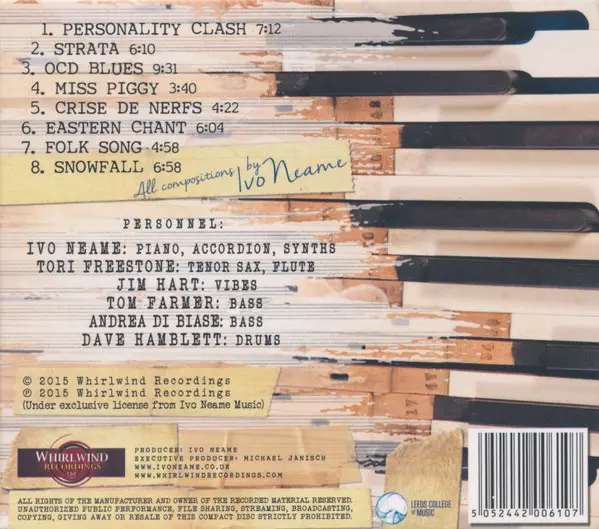 1. PERSONALITY CLASH 7:12
2. STRATA 6:10
3. OCD BLUES 9:31
4. MISS PIGGY 3:40
5. CRISE DE NERFS 4:22
6. EASTERN CHANT 6:04
7. FOLK SONG 4:58
8. SNOWFALL 6:58
All compositions by Ivo Neame
PERSONNEL:
IVO NEAME: PIANO, ACCORDION, SYNTHS
TORI FREESTONE: TENOR SAX, FLUTE
JIM HART: VIBES
TOM FARMER: BASS
ANDREA DI BIASE: BASS
DAVE HAMBLETT: DRUMS
© 2015 Whirlwind Recordings
℗ 2015 Whirlwind Recordings
(Under exclusive license from Ivo Neame Music)
WHIRLWIND
RECORDINGS
PRODUCER: IVO NEAME
EXECUTIVE PRODUCER: MICHAEL JANISCH
WWW.IVONEAME.CO.UK
WWW.WHIRLWINDRECORDINGS.COM
ALL RIGHTS OF THE MANUFACTURER AND OWNER OF THE RECORDED MATERIAL RESERVED.
UNAUTHORIZED PUBLIC PERFORMANCE, FILE SHARING, STREAMING, BROADCASTING,
COPYING, GIVING AWAY OR RESALE OF THIS COMPACT DISC STRICTLY PROHIBITED.
LEEDS COLLEGE
of MUSIC
5 052442 006107
48
17